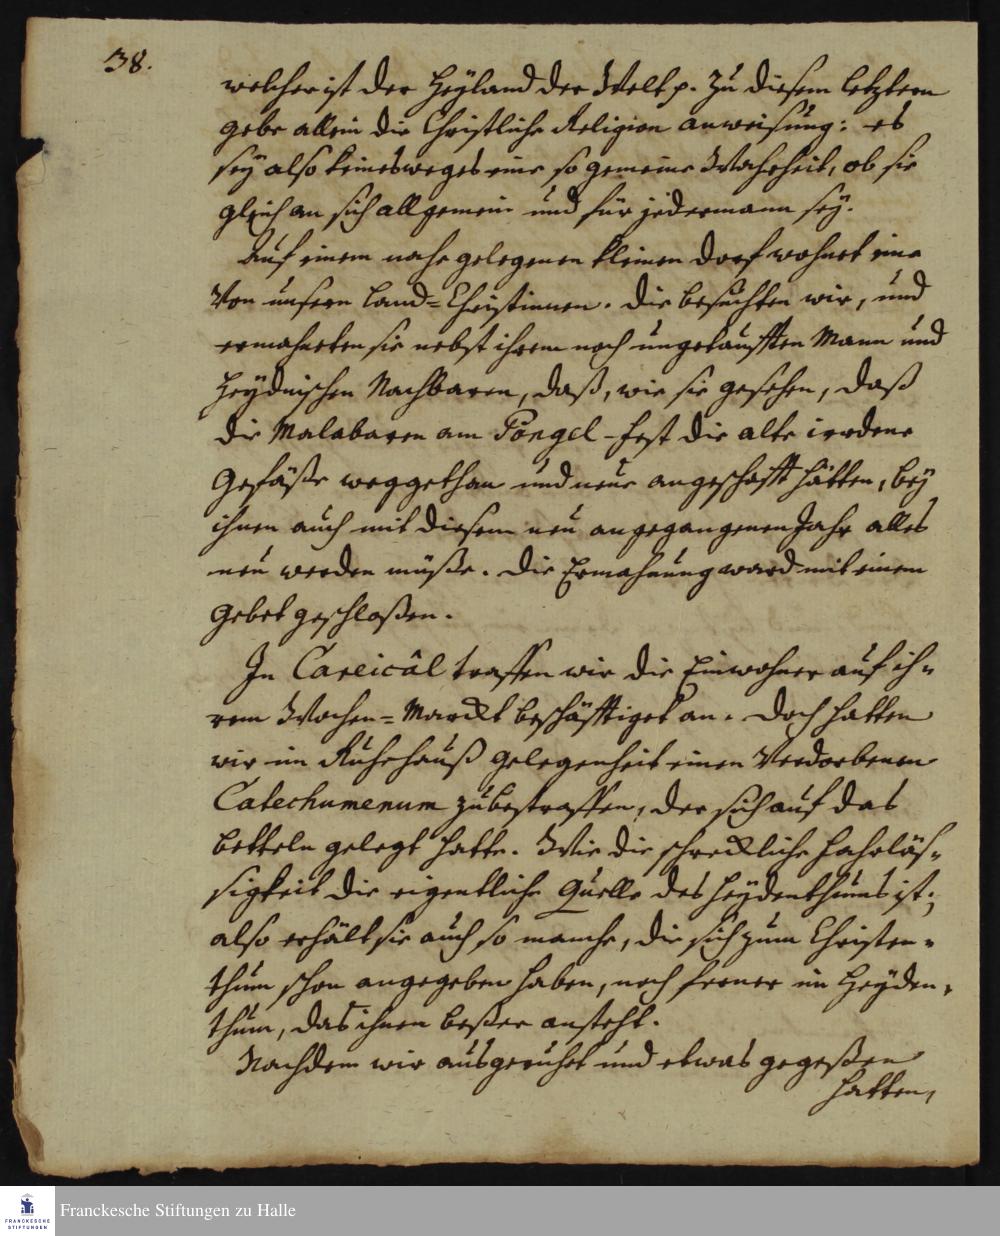 38.
welcher ist der Heyland der Welt p. Zu diesem letztern
gebe allein die Christliche Religion anweisung: es
sey also keinesweges eine so gemeine Wahrheit, ob sie
gleich an sich allgemein und für jedermann sey.
Auf einem nahe gelegenen kleinen Dorf wohnet eine
Von unsern Land=Christinnen. Die besuchten wir, und
ermahneten sie nebst ihrem noch ungetaufften Mann und
Heydnischen Nachbaren, daß, wie sie gesehen, daß
die Malabaren am Pongel-fest die alte irrdene
Gefäße weggethan und neue angeschafft hätten, bey
ihnen auch mit diesem neu angegangenen Jahr alles
neu werden müße. Die Ermahnung ward mit einem
Gebet geschloßen.
In Careicâl traffen wir die Einwohner auf ih=
rem Wochen=Marckt beschäfftiget an. Doch hatten
wir im Ruhehauß gelegenheit einen Verdorbenen
Catechumenum zu bestraffen, der sich auf das
betteln gelegt hatte. Wie die schreckliche Fahrläs=
sigkeit die eigentliche Quelle des Heydenthums ist;
also erhält sie auch so manche, die sich zum Christen=
thum schon angegeben haben, noch ferner im Heyden=
thum, das ihnen beßer ansteht.
Nachdem wir ausgeruhet und etwas gegeßen
hatten,
FRANCKESCHE
STIFTUNGEN
Franckesche Stiftungen zu Halle